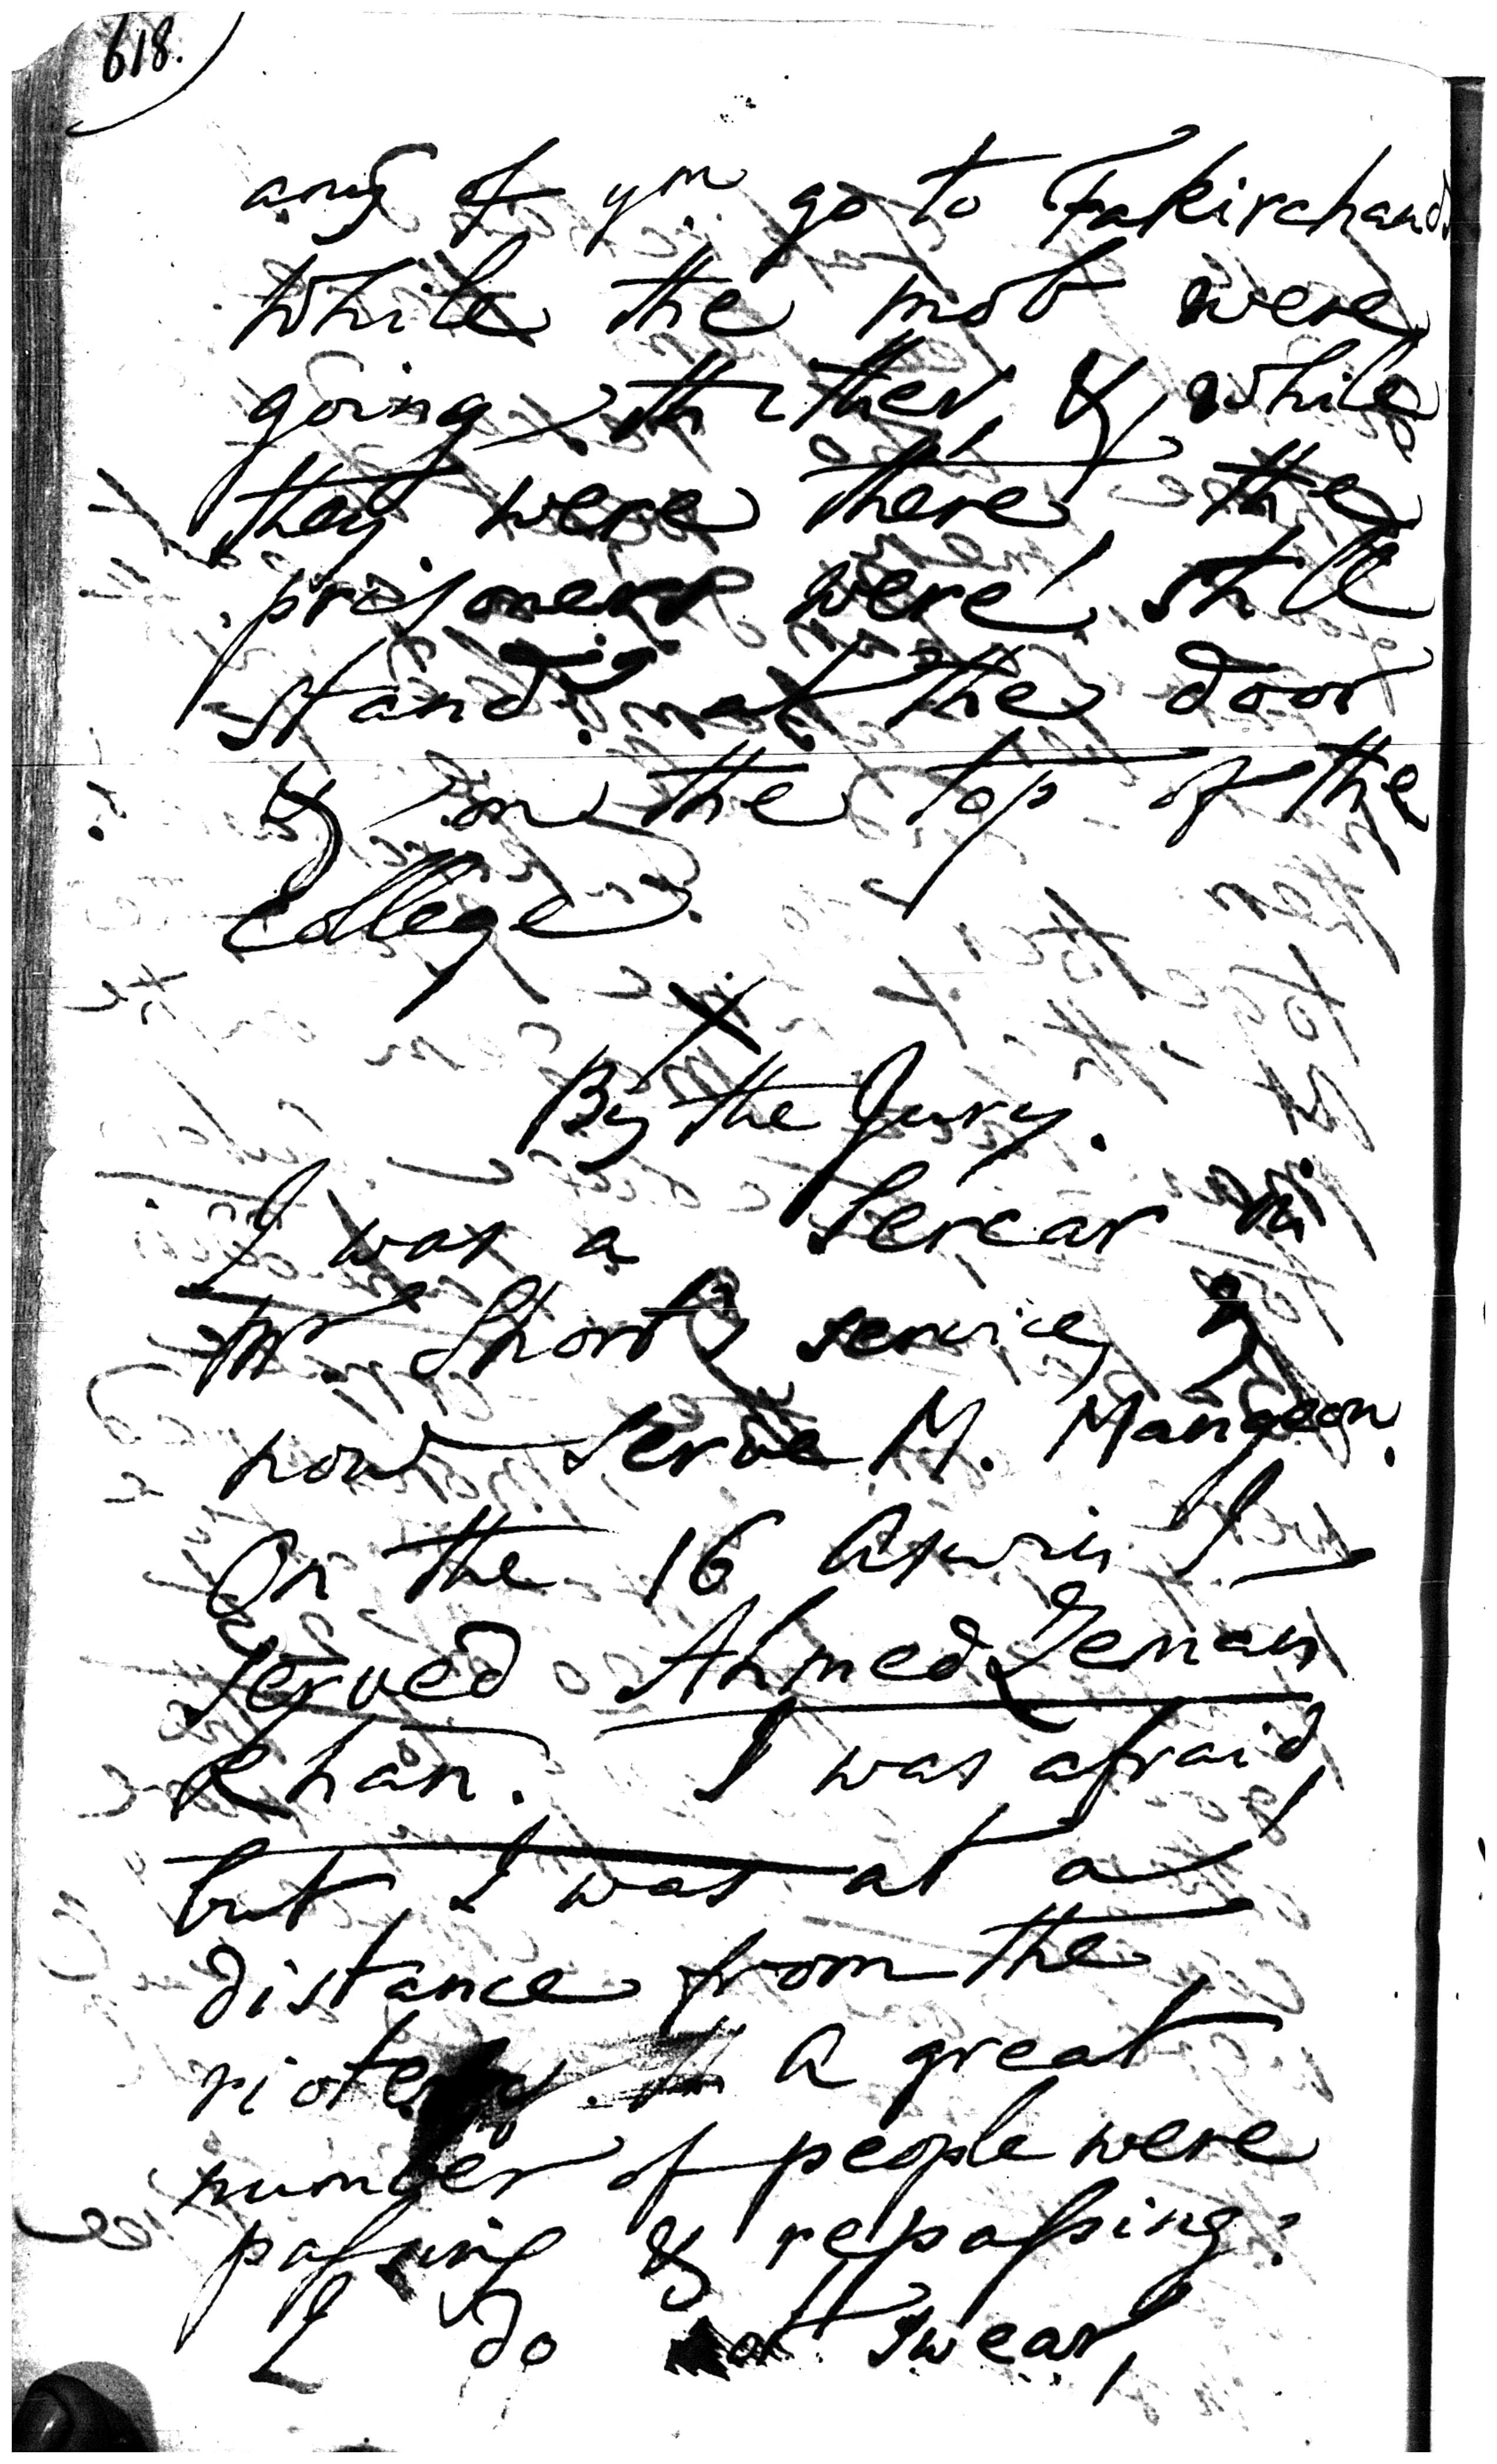 618.
any of ym go to Fakirchands
While the mob were
going thither, & while
they were there the
prisoners were still
standg. at the door
& on the top of the
College.
X
By the Jury.
I was a Sercar in
Mr. Short's service, &
now serve M. Mangeon.
On the 16 Aswin I
served Ahmed Zeman
Khan. I was afraid
but I was at a
distance from the
rioters. A great
number of people were
passing & repassing.
I do not swear,